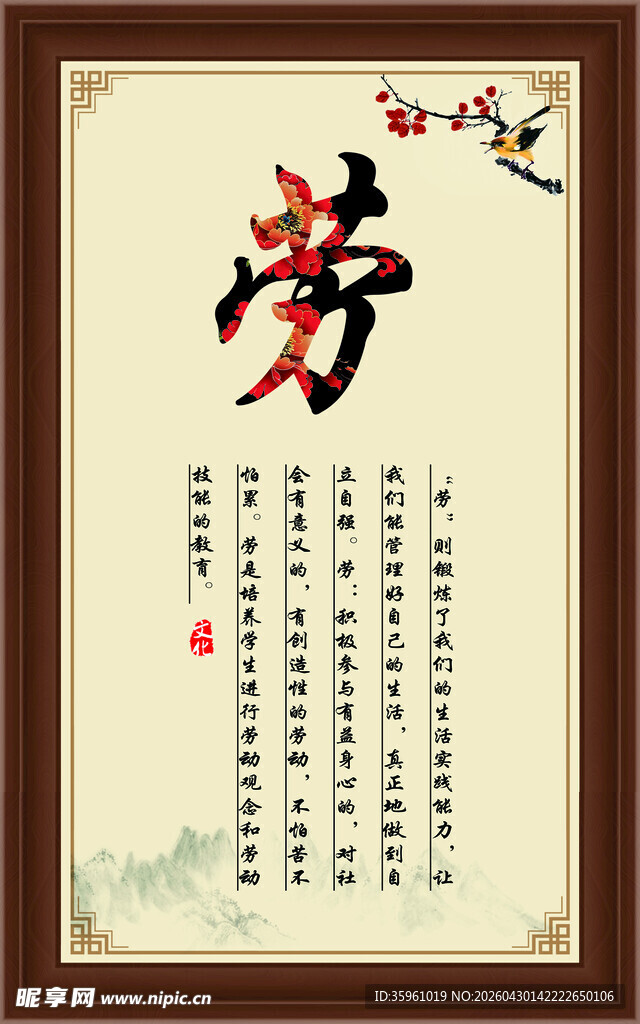 劳
“劳”则锻炼了我们的生活实践能力，让
我们能管理好自己的生活，真正地做到自
立自强。劳：积极参与有益身心的，对社
会有意义的，有创造性的劳动，不怕苦不
怕累。劳是培养学生进行劳动观念和劳动
技能的教育。
文化
昵享网 www.nipic.cn
ID:35961019 NO:20260430142222650106